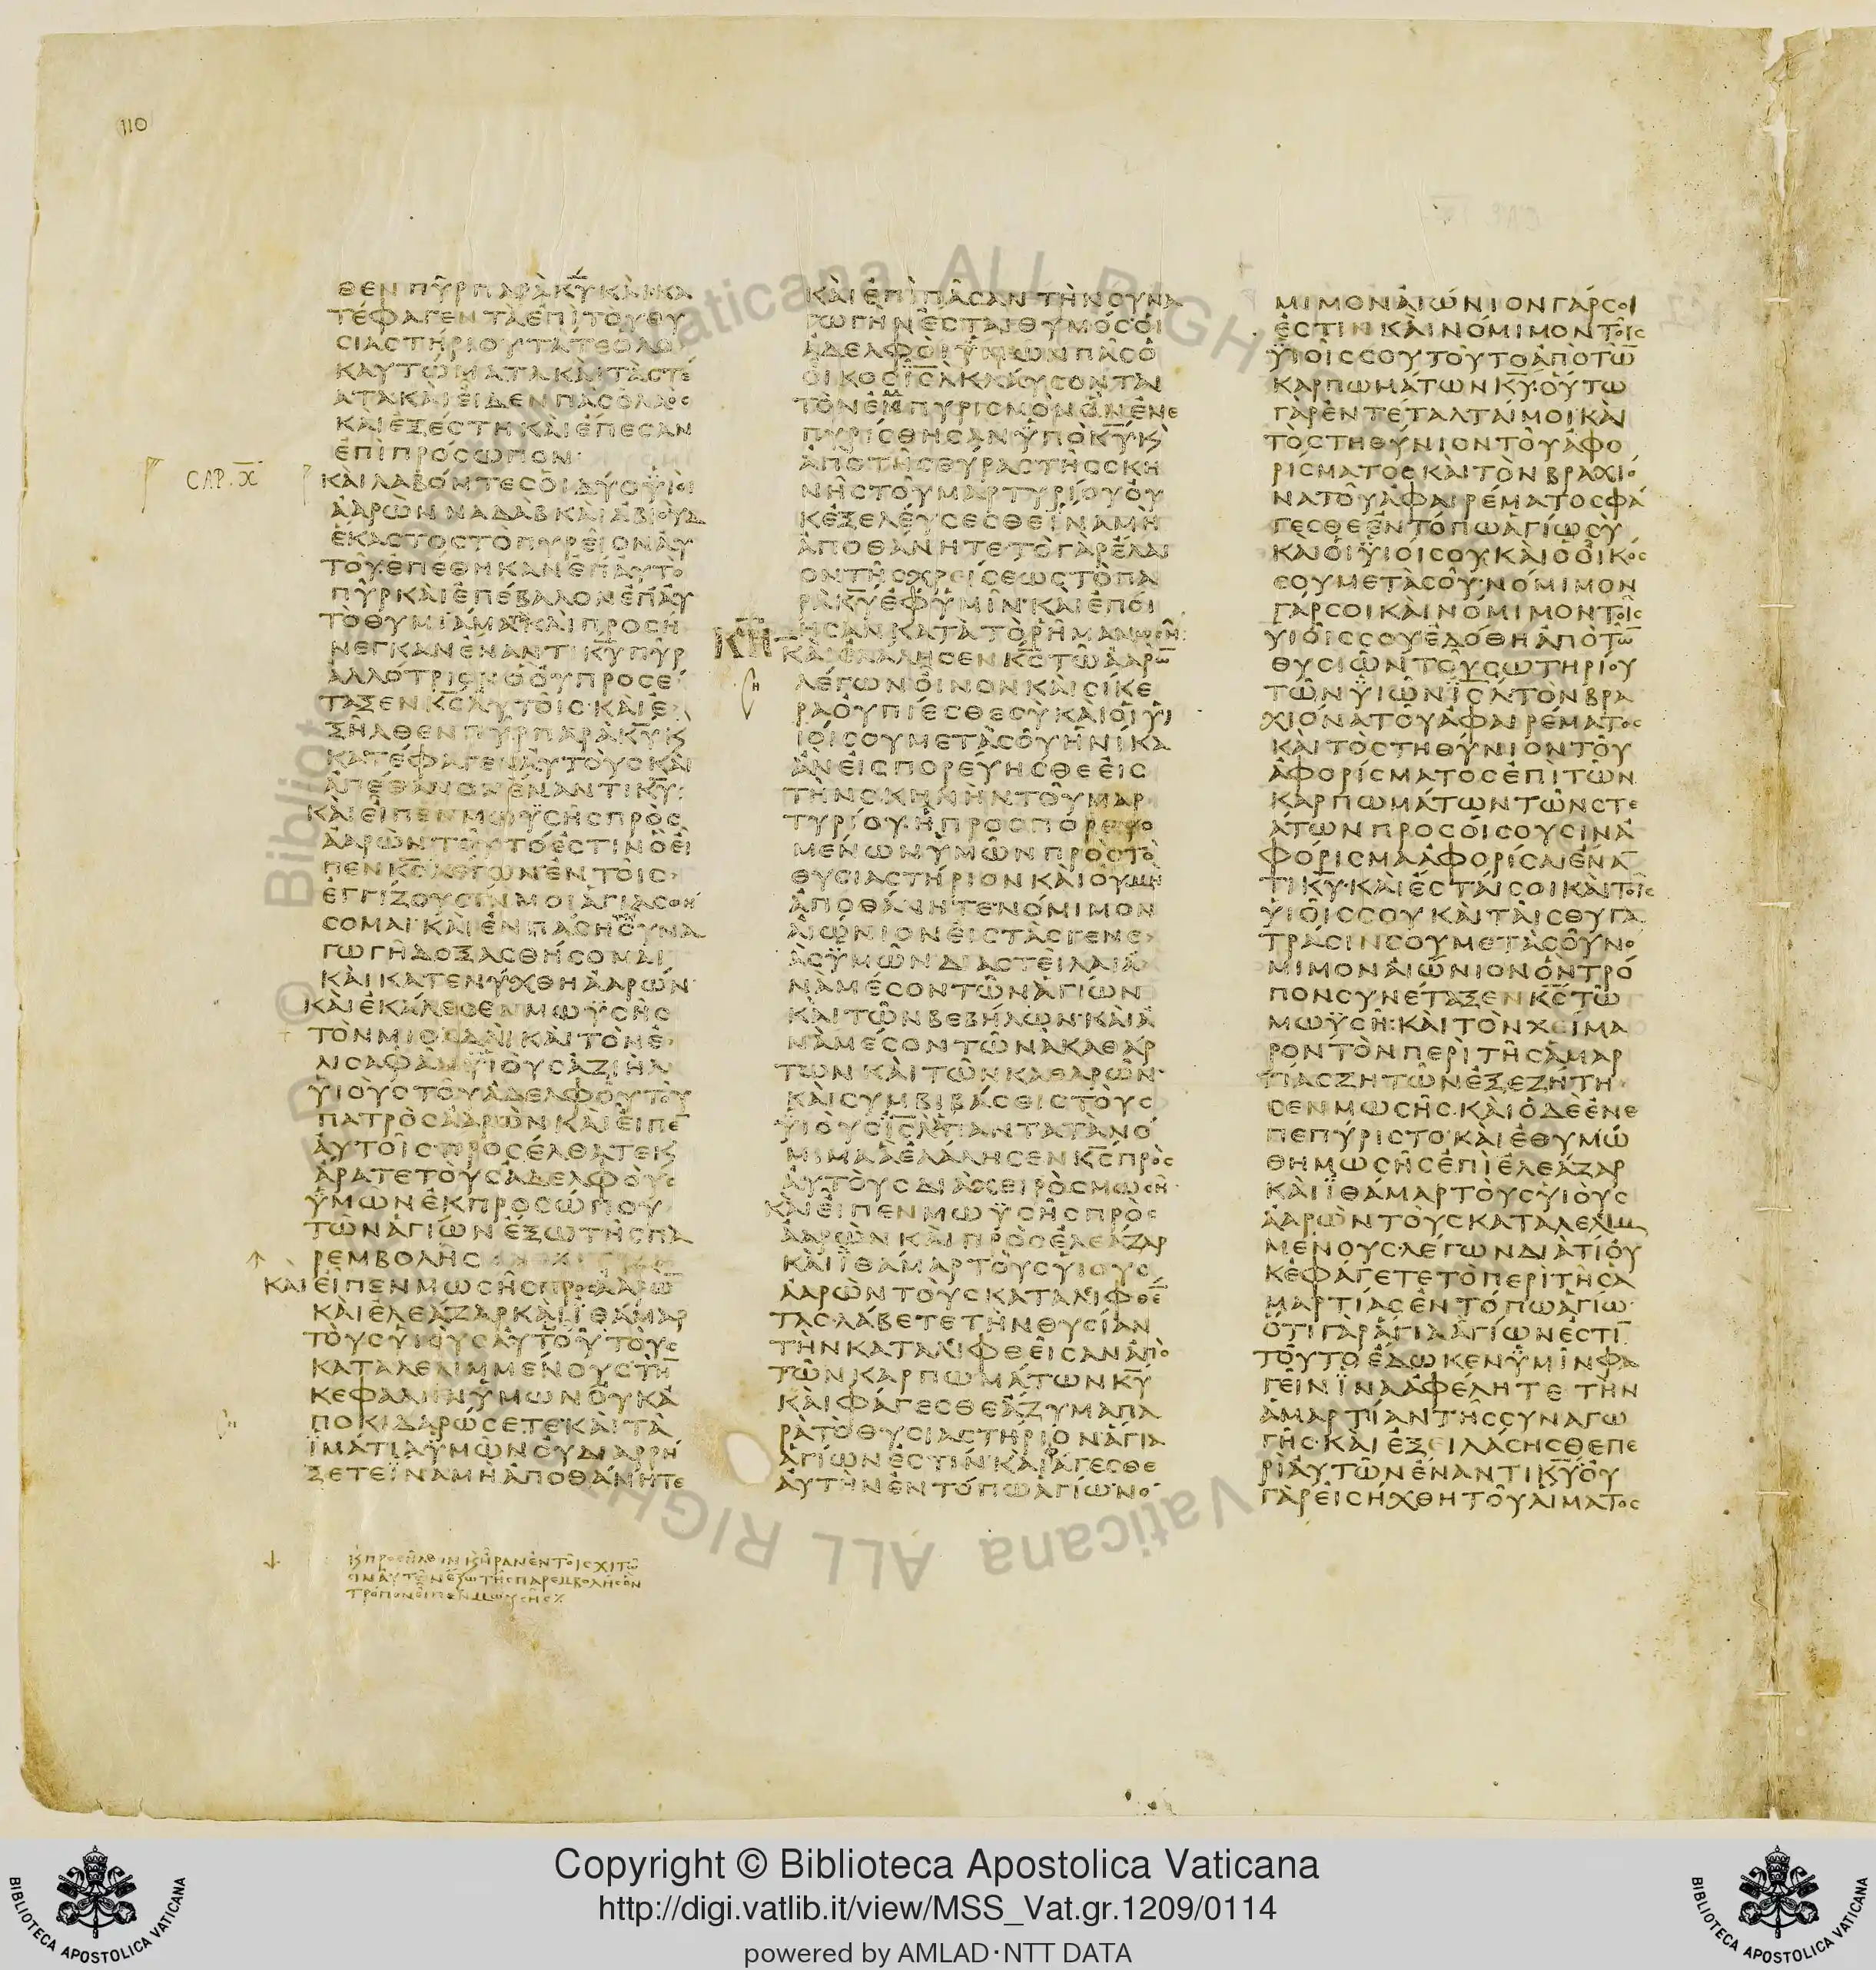 110
ΘΕΝ ΠΥΡ ΠΑΡΑ ΚΥ ΚΑΙ ΚΑ
ΤΕΦΑΓΕΝ ΤΑ ΕΠΙ ΤΟΥ ΘΥ
ΣΙΑΣΤΗΡΙΟΥ ΤΑ ΤΕ ΟΛΟ
ΚΑΥΤΩΜΑΤΑ ΚΑΙ ΤΑ ΣΤΕ
ΑΤΑ ΚΑΙ ΕΙΔΕΝ ΠΑΣ Ο ΛΑΟΣ
ΚΑΙ ΕΞΕΣΤΗ ΚΑΙ ΕΠΕΣΑΝ
ΕΠΙ ΠΡΟΣΩΠΟΝ
CAP. X
ΚΑΙ ΛΑΒΟΝΤΕΣ ΟΙ ΔΥΟ ΫΙΟΙ
ΑΑΡΩΝ ΝΑΔΑΒ ΚΑΙ ΑΒΙΟΥΔ
ΕΚΑΣΤΟΣ ΤΟ ΠΥΡΕΙΟΝ ΑΥ
ΤΟΥ ΕΠΕΘΗΚΑΝ ΕΠ ΑΥΤΟ
ΠΥΡ ΚΑΙ ΕΠΕΒΑΛΟΝ ΕΠ ΑΥ
ΤΟ ΘΥΜΙΑΜΑ ΚΑΙ ΠΡΟΣΗ
ΝΕΓΚΑΝ ΕΝΑΝΤΙ ΚΥ ΠΥΡ
ΑΛΛΟΤΡΙΟΝ Ο ΟΥ ΠΡΟΣΕ
ΤΑΞΕΝ ΚΣ ΑΥΤΟΙΣ ΚΑΙ Ε
ΞΗΛΘΕΝ ΠΥΡ ΠΑΡΑ ΚΥ Κ
ΚΑΤΕΦΑΓΕΝ ΑΥΤΟΥΣ ΚΑΙ
ΑΠΕΘΑΝΟΝ ΕΝΑΝΤΙ ΚΥ
ΚΑΙ ΕΙΠΕΝ ΜΩΫΣΗΣ ΠΡΟΣ
ΑΑΡΩΝ ΤΟΥΤΟ ΕΣΤΙΝ Ο ΕΙ
ΠΕΝ ΚΣ ΛΕΓΩΝ ΕΝ ΤΟΙΣ
ΕΓΓΙΖΟΥΣΙΝ ΜΟΙ ΑΓΙΑΣΘΗ
ΣΟΜΑΙ ΚΑΙ ΕΝ ΠΑΣΗ ΣΥΝΑ
ΓΩΓΗ ΔΟΞΑΣΘΗΣΟΜΑΙ
ΚΑΙ ΚΑΤΕΝΥΧΘΗ ΑΑΡΩΝ
ΚΑΙ ΕΚΑΛΕΣΕΝ ΜΩΫΣΗΣ
ΤΟΝ ΜΙΣΑΔΑΙ ΚΑΙ ΤΟΝ Ε
ΛΙΣΑΦΑΝ ΫΙΟΥΣ ΑΖΙΗΛ
ΫΙΟΥΣ ΤΟΥ ΑΔΕΛΦΟΥ ΤΟΥ
ΠΑΤΡΟΣ ΑΑΡΩΝ ΚΑΙ ΕΙΠΕ
ΑΥΤΟΙΣ ΠΡΟΣΕΛΘΑΤΕ Κ
ΑΡΑΤΕ ΤΟΥΣ ΑΔΕΛΦΟΥΣ
ΫΜΩΝ ΕΚ ΠΡΟΣΩΠΟΥ
ΤΩΝ ΑΓΙΩΝ ΕΞΩ ΤΗΣ ΠΑ
ΡΕΜΒΟΛΗΣ
ΚΑΙ ΕΙΠΕΝ ΜΩΣΗΣ ΠΡΟΣ ΑΑΡΩ
ΚΑΙ ΕΛΕΑΖΑΡ ΚΑΙ ΪΘΑΜΑΡ
ΤΟΥΣ ΥΙΟΥΣ ΑΥΤΟΥ ΤΟΥΣ
ΚΑΤΑΛΕΛΙΜΜΕΝΟΥΣ ΤΗ
ΚΕΦΑΛΗΝ ΫΜΩΝ ΟΥΚ Α
ΠΟΚΙΔΑΡΩΣΕΤΕ ΚΑΙ ΤΑ
ΪΜΑΤΙΑ ΫΜΩΝ ΟΥ ΔΙΑΡΡΗ
ΞΕΤΕ ΪΝΑ ΜΗ ΑΠΟΘΑΝΗΤΕ
Κ ΠΡΟΣΗΛΘΟΝ Κ ΗΡΑΝ ΕΝ ΤΟΙΣ ΧΙΤΩ
ΣΙΝ ΑΥΤΩΝ ΕΞΩ ΤΗΣ ΠΑΡΕΜΒΟΛΗΣ ΟΝ
ΤΡΟΠΟΝ ΕΙΠΕΝ ΜΩΥΣΗΣ
ΚΑΙ ΕΠΙ ΠΑΣΑΝ ΤΗΝ ΣΥΝΑ
ΓΩΓΗΝ ΕΣΤΑΙ ΘΥΜΟΣ ΟΙ
ΑΔΕΛΦΟΙ ΫΜΩΝ ΠΑΣ Ο
ΟΙΚΟΣ ΙΣΛ ΚΛΑΥΣΟΝΤΑΙ
ΤΟΝ ΕΜΠΥΡΙΣΜΟΝ ΟΝ ΕΝΕ
ΠΥΡΙΣΘΗΣΑΝ ΫΠΟ ΚΥ Κ
ΑΠΟ ΤΗΣ ΘΥΡΑΣ ΤΗΣ ΣΚΗ
ΝΗΣ ΤΟΥ ΜΑΡΤΥΡΙΟΥ ΟΥ
Κ ΕΞΕΛΕΥΣΕΣΘΕ ΪΝΑ ΜΗ
ΑΠΟΘΑΝΗΤΕ ΤΟ ΓΑΡ ΕΛΑΙ
ΟΝ ΤΗΣ ΧΡΕΙΣΕΩΣ ΤΟ ΠΑ
ΡΑ ΚΥ ΕΦ ΫΜΙΝ ΚΑΙ ΕΠΟΙ
ΗΣΑΝ ΚΑΤΑ ΤΟ ΡΗΜΑ ΜΩΣΗ
ΚΗ ΚΑΙ ΕΛΑΛΗΣΕΝ ΚΣ ΤΩ ΑΑΡΩ
Η ΛΕΓΩΝ ΟΙΝΟΝ ΚΑΙ ΣΙΚΕ
ΡΑ ΟΥ ΠΙΕΣΘΕ ΣΥ ΚΑΙ ΟΙ ΫΙ
ΙΟΙ ΣΟΥ ΜΕΤΑ ΣΟΥ ΗΝΙΚΑ
ΑΝ ΕΙΣΠΟΡΕΥΗΣΘΕ ΕΙΣ
ΤΗΝ ΣΚΗΝΗΝ ΤΟΥ ΜΑΡ
ΤΥΡΙΟΥ Η ΠΡΟΣΠΟΡΕΥΟ
ΜΕΝΩΝ ΫΜΩΝ ΠΡΟΣ ΤΟ
ΘΥΣΙΑΣΤΗΡΙΟΝ ΚΑΙ ΟΥ ΜΗ
ΑΠΟΘΑΝΗΤΕ ΝΟΜΙΜΟΝ
ΑΙΩΝΙΟΝ ΕΙΣ ΤΑΣ ΓΕΝΕ
ΑΣ ΫΜΩΝ ΔΙΑΣΤΕΙΛΑΙ Α
ΝΑ ΜΕΣΟΝ ΤΩΝ ΑΓΙΩΝ
ΚΑΙ ΤΩΝ ΒΕΒΗΛΩΝ ΚΑΙ Α
ΝΑ ΜΕΣΟΝ ΤΩΝ ΑΚΑΘΑΡ
ΤΩΝ ΚΑΙ ΤΩΝ ΚΑΘΑΡΩΝ
ΚΑΙ ΣΥΜΒΙΒΑΣΘΙΣ ΤΟΥΣ
ΫΙΟΥΣ ΙΣΛ ΠΑΝΤΑ ΤΑ ΝΟ
ΜΙΜΑ Α ΕΛΑΛΗΣΕΝ ΚΣ ΠΡΟΣ
ΑΥΤΟΥΣ ΔΙΑ ΧΕΙΡΟΣ ΜΩΣΗ
ΚΑΙ ΕΙΠΕΝ ΜΩΫΣΗΣ ΠΡΟΣ
ΑΑΡΩΝ ΚΑΙ ΠΡΟΣ ΕΛΕΑΖΑΡ
ΚΑΙ ΪΘΑΜΑΡ ΤΟΥΣ ΥΙΟΥΣ
ΑΑΡΩΝ ΤΟΥΣ ΚΑΤΑΛΙΦΘΕ
ΤΑΣ ΛΑΒΕΤΕ ΤΗΝ ΘΥΣΙΑΝ
ΤΗΝ ΚΑΤΑΛΙΦΘΕΙΣΑΝ ΑΠΟ
ΤΩΝ ΚΑΡΠΩΜΑΤΩΝ ΚΥ
ΚΑΙ ΦΑΓΕΣΘΕ ΑΖΥΜΑ ΠΑ
ΡΑ ΤΟ ΘΥΣΙΑΣΤΗΡΙΟΝ ΑΓΙΑ
ΑΓΙΩΝ ΕΣΤΙΝ ΚΑΙ ΦΑΓΕΣΘΕ
ΑΥΤΗΝ ΕΝ ΤΟΠΩ ΑΓΙΩ ΝΟ
ΜΙΜΟΝ ΑΙΩΝΙΟΝ ΓΑΡ ΣΟΙ
ΕΣΤΙΝ ΚΑΙ ΝΟΜΙΜΟΝ ΤΟΙΣ
ΫΙΟΙΣ ΣΟΥ ΤΟΥΤΟ ΑΠΟ ΤΩ
ΚΑΡΠΩΜΑΤΩΝ ΚΥ ΟΥΤΩ
ΓΑΡ ΕΝΤΕΤΑΛΤΑΙ ΜΟΙ ΚΑΙ
ΤΟ ΣΤΗΘΥΝΙΟΝ ΤΟΥ ΑΦΟ
ΡΙΣΜΑΤΟΣ ΚΑΙ ΤΟΝ ΒΡΑΧΙΟ
ΝΑ ΤΟΥ ΑΦΑΙΡΕΜΑΤΟΣ ΦΑ
ΓΕΣΘΕ ΕΝ ΤΟΠΩ ΑΓΙΩ ΣΥ
ΚΑΙ ΟΙ ΫΙΟΙ ΣΟΥ ΚΑΙ Ο ΟΙΚΟΣ
ΣΟΥ ΜΕΤΑ ΣΟΥ ΝΟΜΙΜΟΝ
ΓΑΡ ΣΟΙ ΚΑΙ ΝΟΜΙΜΟΝ ΤΟΙΣ
ΥΙΟΙΣ ΣΟΥ ΕΔΟΘΗ ΑΠΟ ΤΩ
ΘΥΣΙΩΝ ΤΟΥ ΣΩΤΗΡΙΟΥ
ΤΩΝ ΫΙΩΝ ΙΣΛ ΤΟΝ ΒΡΑ
ΧΙΟΝΑ ΤΟΥ ΑΦΑΙΡΕΜΑΤΟΣ
ΚΑΙ ΤΟ ΣΤΗΘΥΝΙΟΝ ΤΟΥ
ΑΦΟΡΙΣΜΑΤΟΣ ΕΠΙ ΤΩΝ
ΚΑΡΠΩΜΑΤΩΝ ΤΩΝ ΣΤΕ
ΑΤΩΝ ΠΡΟΣΟΙΣΟΥΣΙΝ Α
ΦΟΡΙΣΜΑ ΑΦΟΡΙΣΑΙ ΕΝΑ
ΤΙ ΚΥ ΚΑΙ ΕΣΤΑΙ ΣΟΙ ΚΑΙ ΤΟΙΣ
ΫΙΟΙΣ ΣΟΥ ΚΑΙ ΤΑΙΣ ΘΥΓΑ
ΤΡΑΣΙΝ ΣΟΥ ΜΕΤΑ ΣΟΥ ΝΟ
ΜΙΜΟΝ ΑΙΩΝΙΟΝ ΟΝ ΤΡΟ
ΠΟΝ ΣΥΝΕΤΑΞΕΝ ΚΣ ΤΩ
ΜΩΫΣΗ ΚΑΙ ΤΟΝ ΧΕΙΜΑ
ΡΟΝ ΤΟΝ ΠΕΡΙ ΤΗΣ ΑΜΑΡ
ΤΙΑΣ ΖΗΤΩΝ ΕΞΕΖΗΤΗ
ΣΕΝ ΜΩΣΗΣ ΚΑΙ ΟΔΕ ΕΝΕ
ΠΕΠΥΡΙΣΤΟ ΚΑΙ ΕΘΥΜΩ
ΘΗ ΜΩΣΗΣ ΕΠΙ ΕΛΕΑΖΑΡ
ΚΑΙ ΪΘΑΜΑΡ ΤΟΥΣ ΥΙΟΥΣ
ΑΑΡΩΝ ΤΟΥΣ ΚΑΤΑΛΕΛΙΜ
ΜΕΝΟΥΣ ΛΕΓΩΝ ΔΙΑ ΤΙ ΟΥ
Κ ΕΦΑΓΕΤΕ ΤΟ ΠΕΡΙ ΤΗΣ Α
ΜΑΡΤΙΑΣ ΕΝ ΤΟΠΩ ΑΓΙΩ
ΟΤΙ ΓΑΡ ΑΓΙΑ ΑΓΙΩΝ ΕΣΤΙ
ΤΟΥΤΟ ΕΔΩΚΕΝ ΫΜΙΝ ΦΑ
ΓΕΙΝ ΪΝΑ ΑΦΕΛΗΤΕ ΤΗΝ
ΑΜΑΡΤΙΑΝ ΤΗΣ ΣΥΝΑΓΩ
ΓΗΣ ΚΑΙ ΕΞΕΙΛΑΣΗΣΘΕ ΠΕ
ΡΙ ΑΥΤΩΝ ΕΝΑΝΤΙ ΚΥ ΟΥ
ΓΑΡ ΕΙΣΗΧΘΗ ΤΟΥ ΑΙΜΑΤΟΣ
Copyright © Biblioteca Apostolica Vaticana
http://digi.vatlib.it/view/MSS_Vat.gr.1209/0114
powered by AMLAD·NTT DATA
BIBLIOTECA APOSTOLICA VATICANA
BIBLIOTECA APOSTOLICA VATICANA